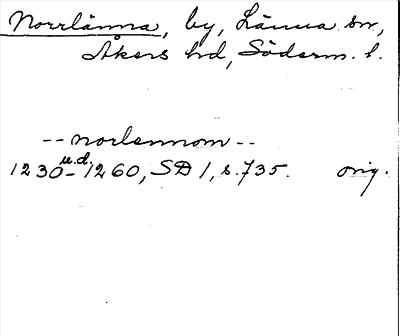 Norrlänna, by, Länna sn,
Åkers hd, Söderm. l.
-- norlennom --
u.d.
1230-1260, SD 1, s. 735. orig.